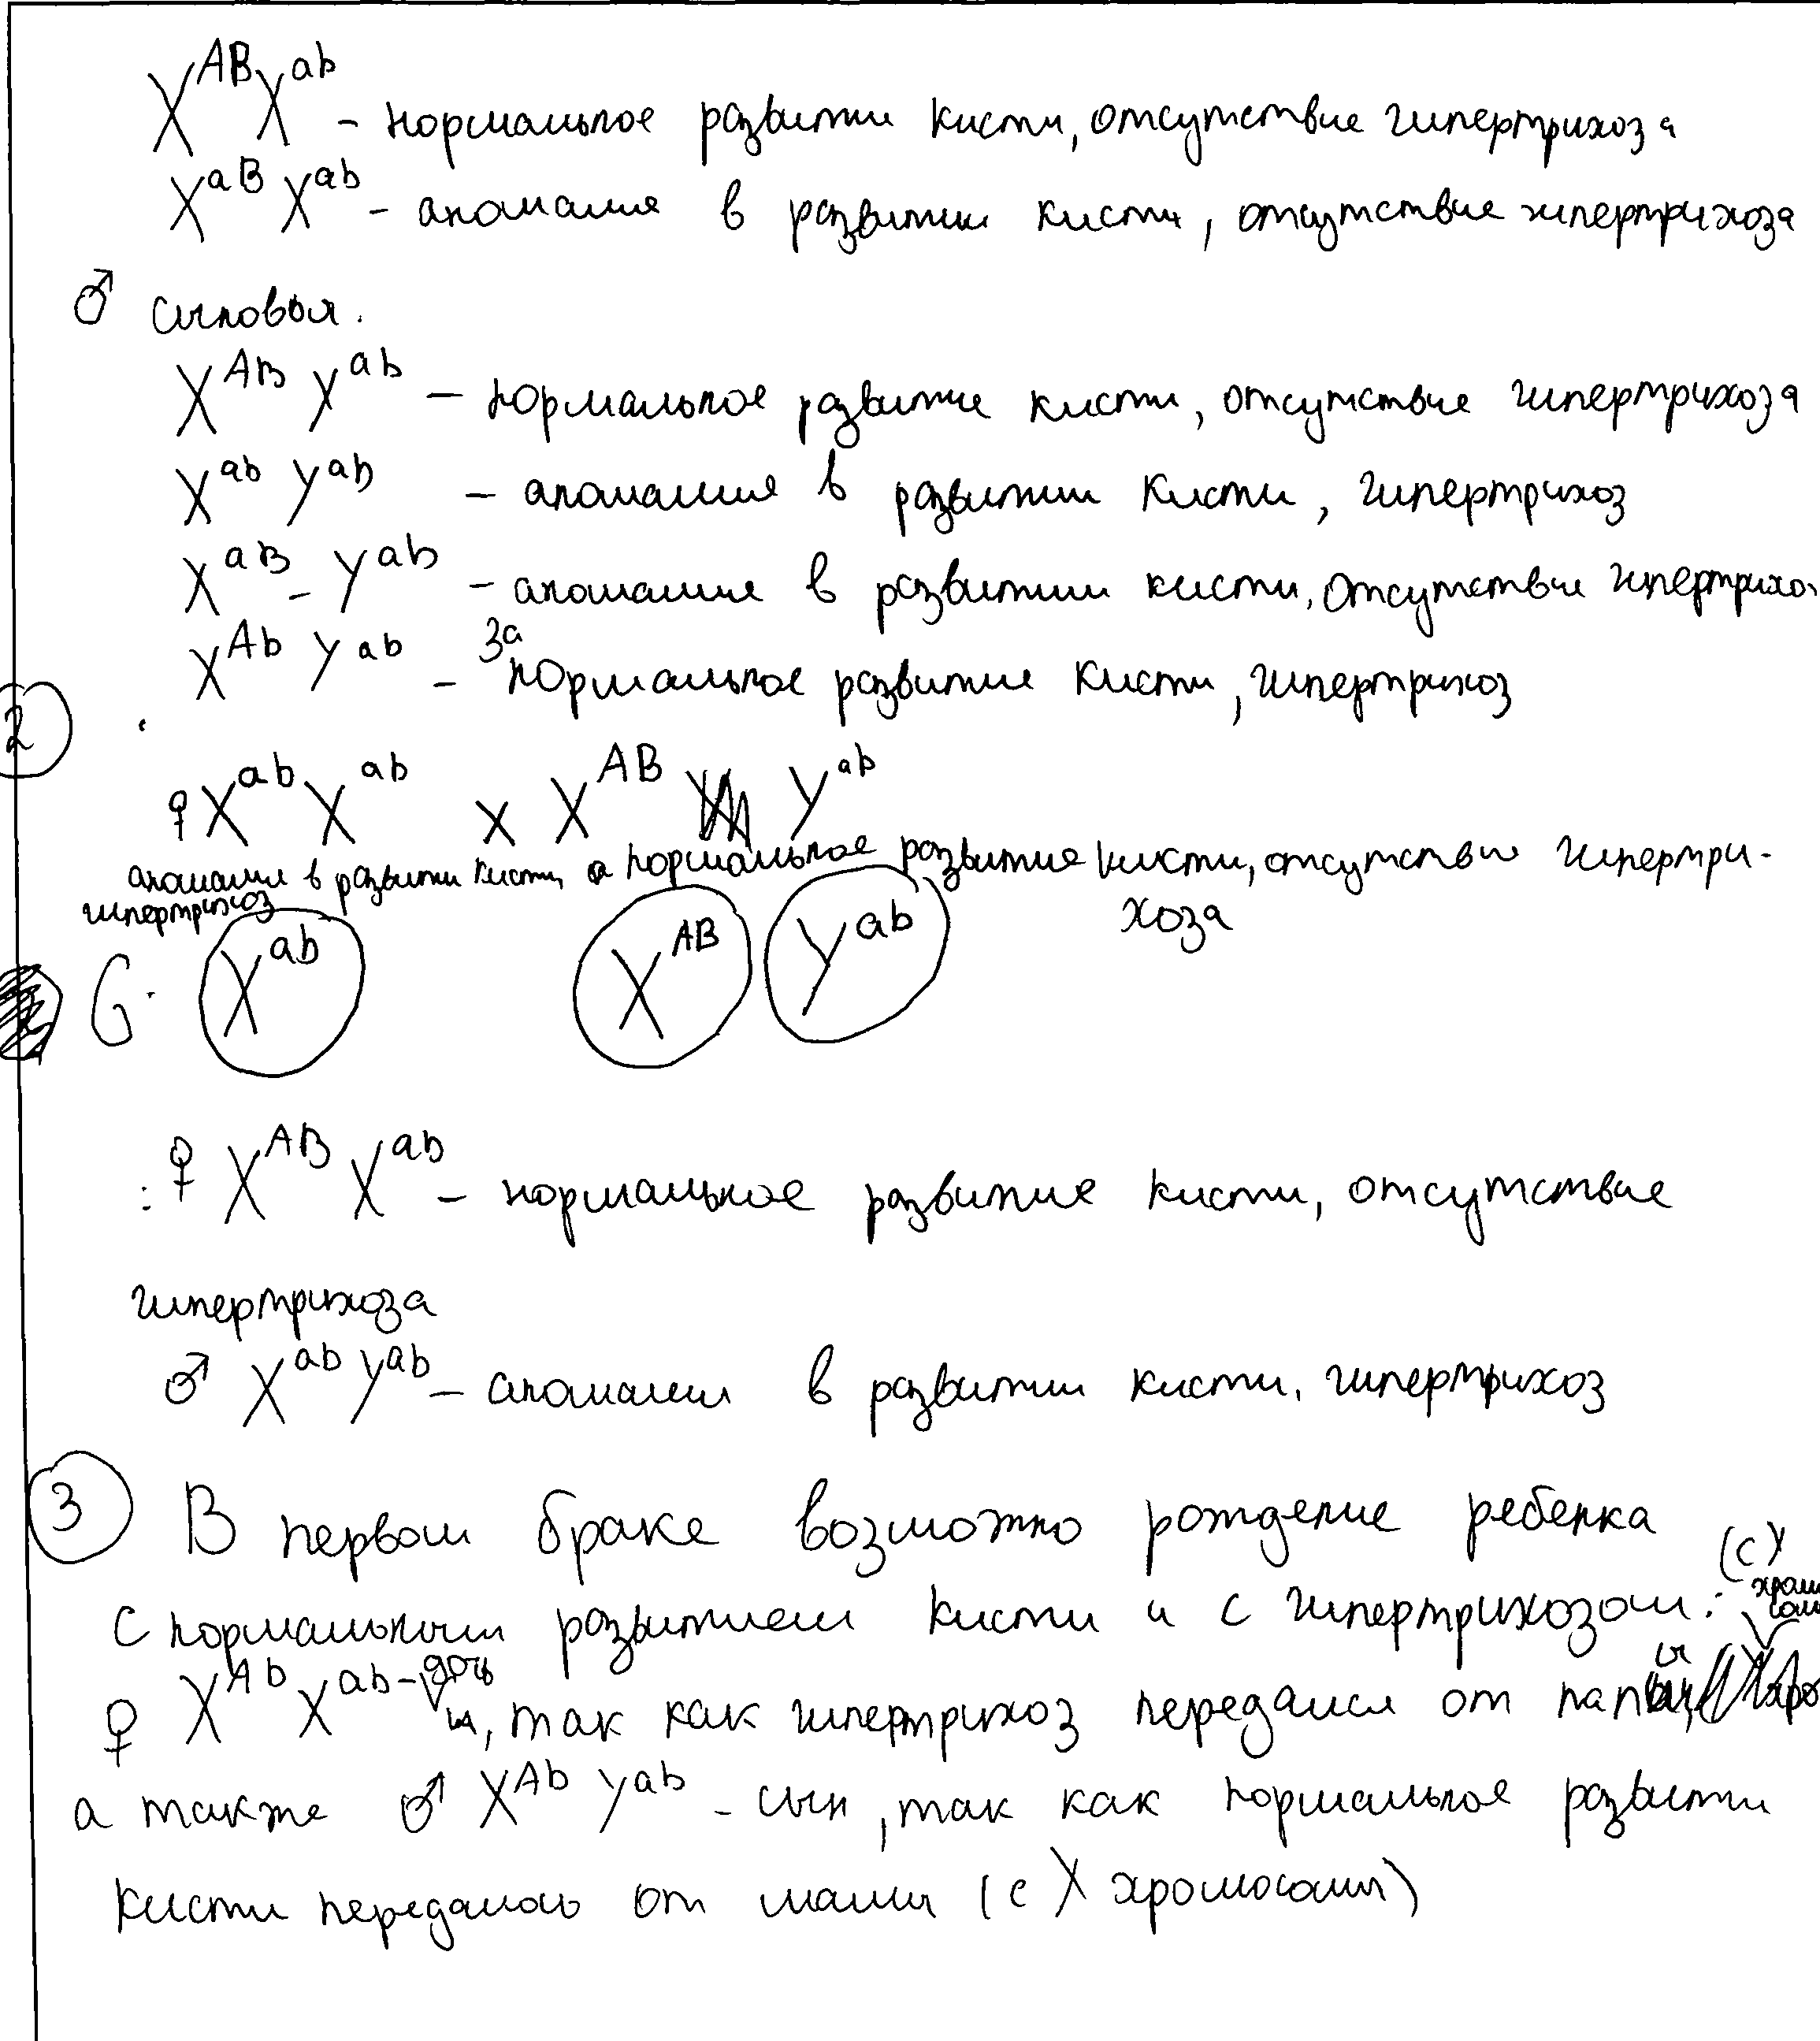 X^AB X^ab – нормальное развитии кисти, отсутствие гипертрихоза
X^aB X^ab – аномалия в развитии кисти, отсутствие гипертрихоза
♂ сыновья.
X^AB Y^ab – нормальное развитие кисти, отсутствие гипертрихоза
X^ab Y^ab – аномалия в развитии кисти, гипертрихоз
X^aB – Y^ab – аномалия в развитии кисти, отсутствие гипертрихо
X^Ab Y^ab – нормальное развитие кисти, гипертрихоз
2
♀ X^ab X^ab × X^AB Y^ab
аномалии в развити кисти, нормальное развитие кисти, отсутствие гипертри-
гипертрихоз хоза
G. X^ab X^AB Y^ab
: ♀ X^AB X^ab – нормальное развитие кисти, отсутствие
гипертрихоза
♂ X^ab Y^ab – аномалии в развитии кисти, гипертрихоз
3 В первом браке возможно рождение ребенка
с нормальным развитием кисти и с гипертрихозом: (с Y
♀ X^Ab X^ab – дочь, так как гипертрихоз передался от папы
а также ♂ X^Ab Y^ab – сын, так как нормальное развити
кисти передалось от мамы (с X хромосомы)